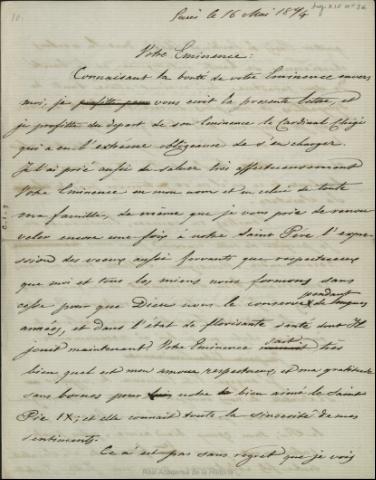 10.
Paris le 16 Mai 1874
Votre Eminence:
Connaisant la bonté de votre Eminence envers
moi, je profite pour vous ecrit la presente lettre, et
je profitte du depart de son Eminence le Cardinal Chigi
qui a eu l'extrème obligeance de s'en charger.
Je l'ai prié aussi de saluer très affectueusement
Votre Eminence en mon nom et en celui de toute
ma famille, de même que je vous prie de renou
veler encore une fois à notre Saint Père l'expre
ssion des voeux aussi fervants que respectueux
que moi et tous les miens nous formons sans
cesse pour que Dieu nous le conserve pendant de longues
années, et dans l'état de florisante santé dont Il
jouit maintenant. Votre Eminence sait très
bien quel est mon amour respectueux et ma gratitude
sans bornes pour notre bien aimé le Saint
Pie IX; et elle connait toute la sincerité de mes
sentiments.
Ce n'est pas sans regret que je vois
Real Academia de la Historia